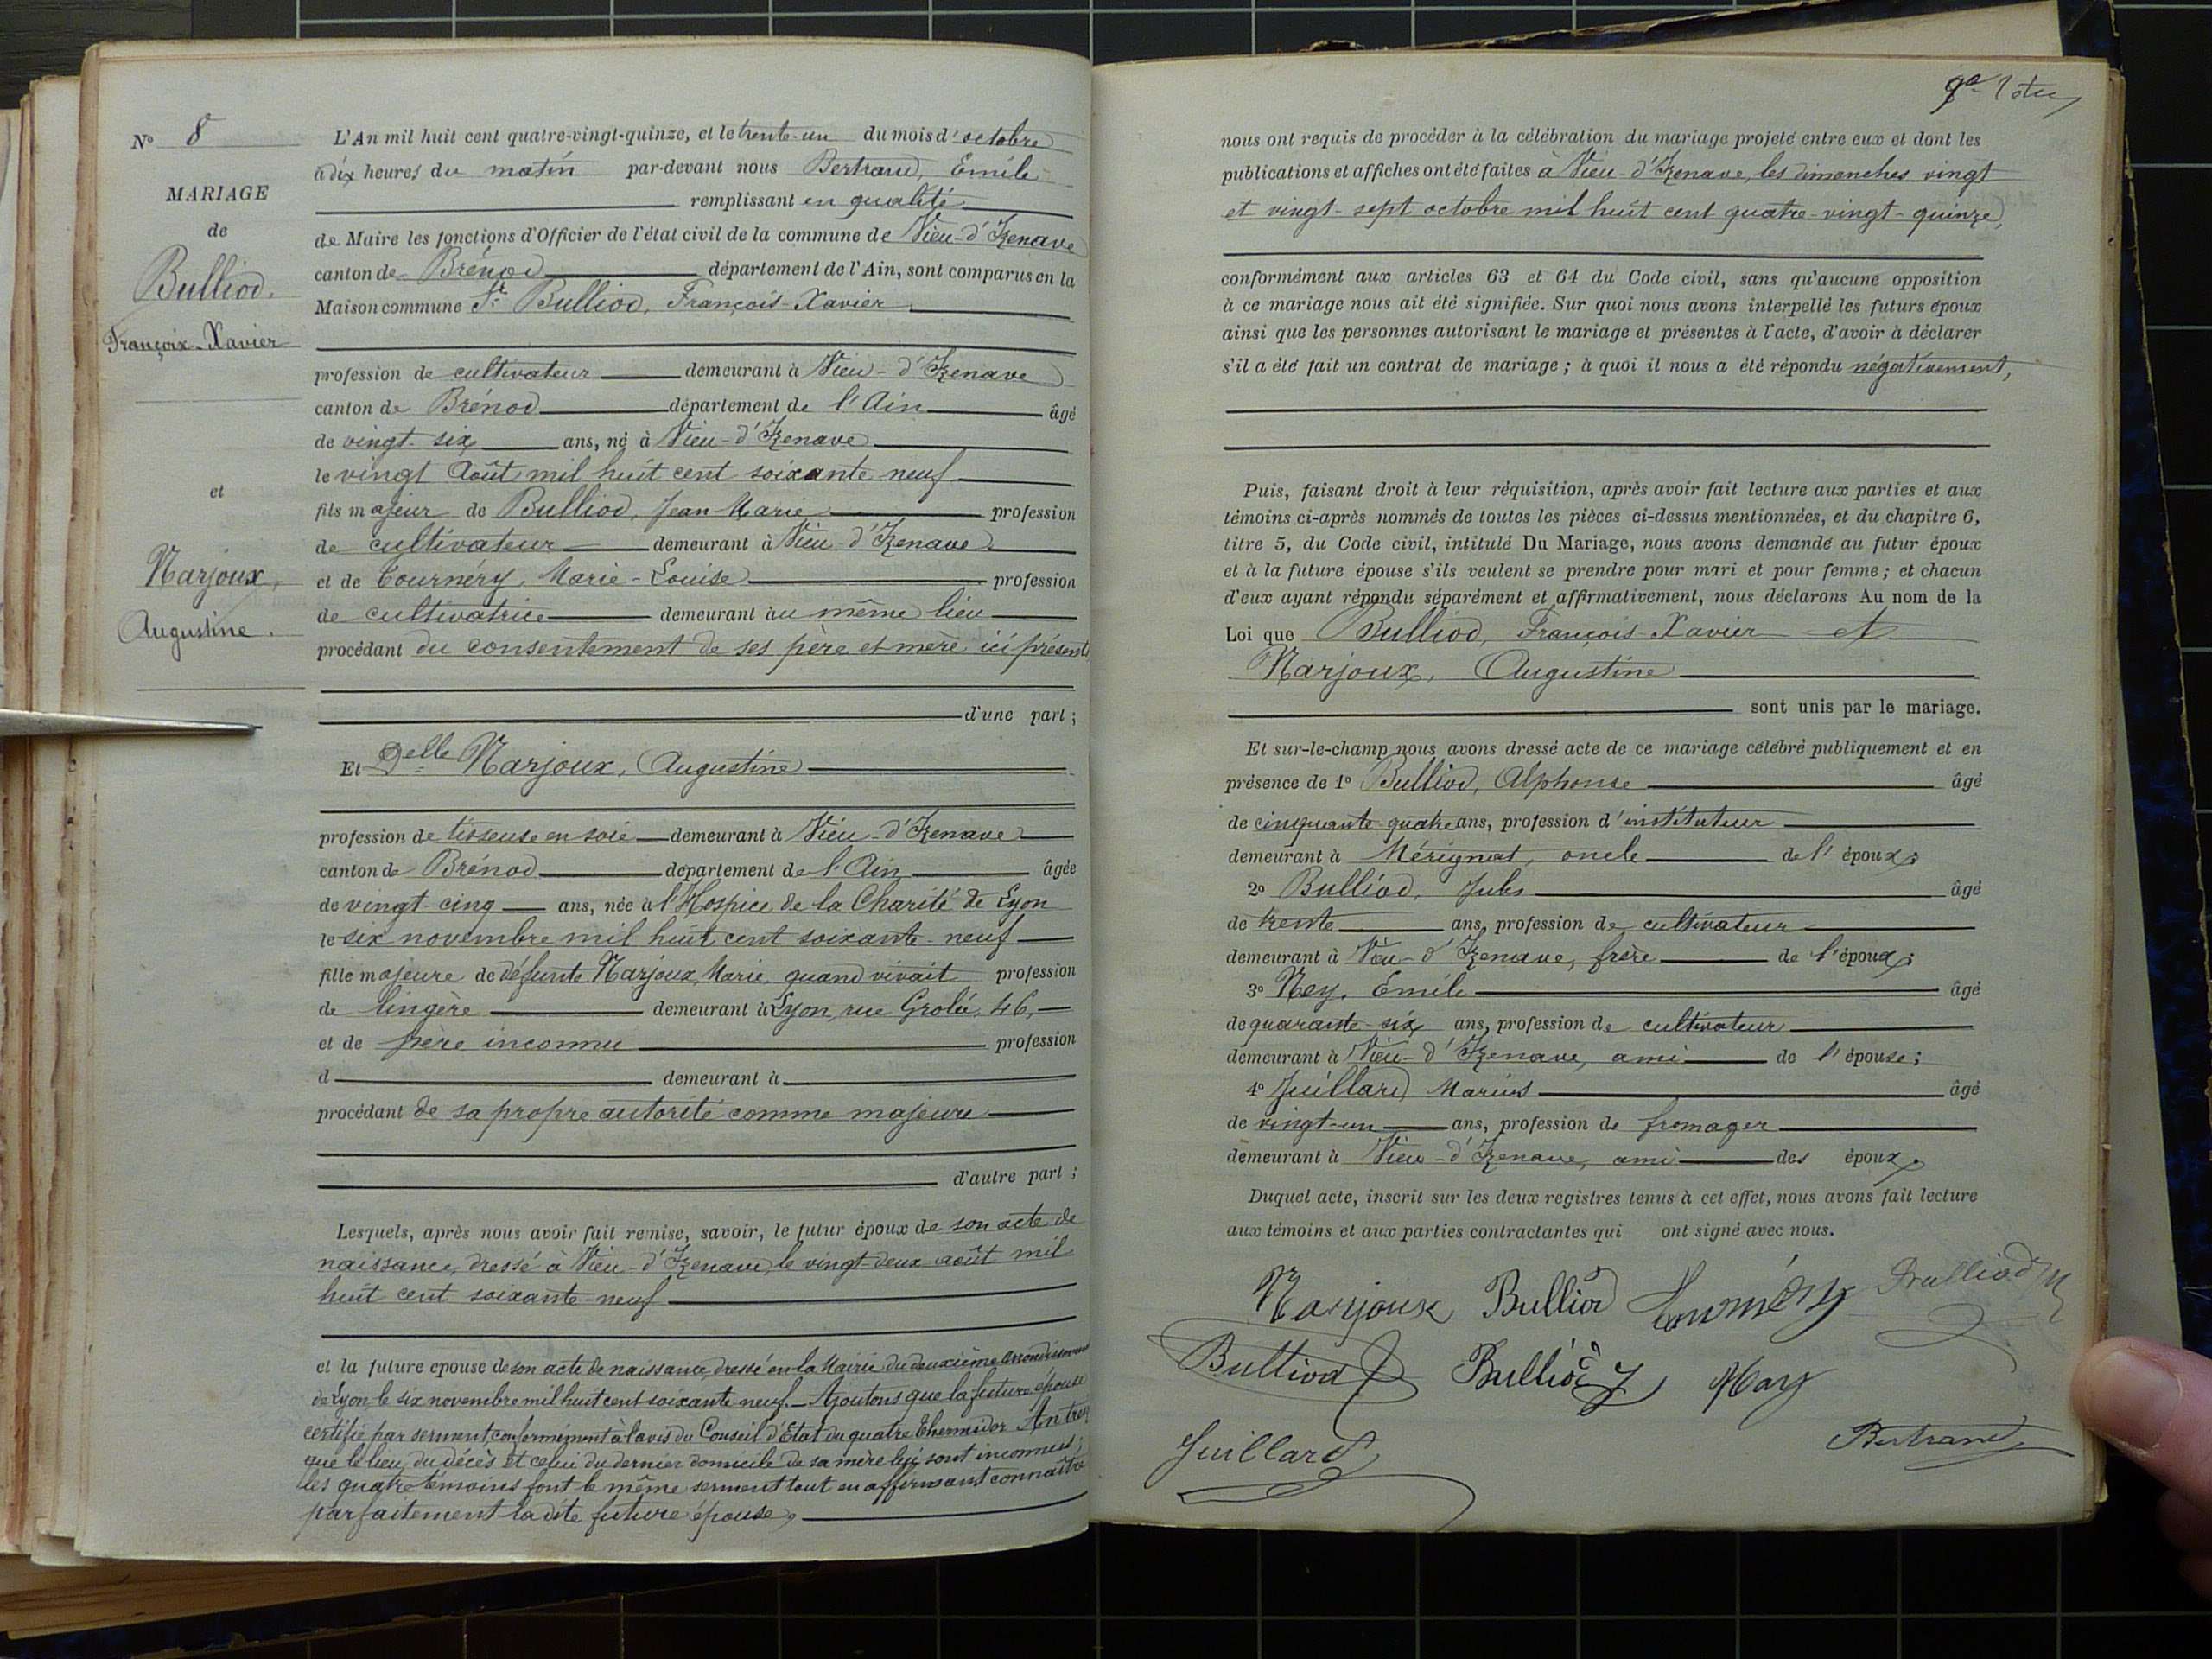 N° 8
MARIAGE
de
Bulliod,
François-Xavier
et
Marjoux,
Augustine.
L'An mil huit cent quatre-vingt-quinze, et le trente-un du mois d'octobre
à dix heures du matin par-devant nous Bertrand, Emile
remplissant en qualité
de Maire les fonctions d'Officier de l'état civil de la commune de Vieu-d'Izenave
canton de Brénod département de l'Ain, sont comparus en la
Maison commune Sr Bulliod, François-Xavier
profession de cultivateur demeurant à Vieu-d'Izenave
canton de Brénod département de l'Ain âgé
de vingt-six ans, né à Vieu-d'Izenave
le vingt Août mil huit cent soixante-neuf
fils majeur de Bulliod, Jean-Marie profession
de cultivateur demeurant à Vieu-d'Izenave
et de Tournéry, Marie-Louise profession
de cultivatrice demeurant au même lieu
procédant du consentement de ses père et mère ici présents
d'une part ;
Et Delle Marjoux, Augustine
profession de tisseuse en soie demeurant à Vieu-d'Izenave
canton de Brénod département de l'Ain âgée
de vingt-cinq ans, née à l'Hospice de la Charité de Lyon
le six novembre mil huit cent soixante-neuf
fille majeure de défunte Marjoux, Marie, quand vivait profession
de lingère demeurant à Lyon, rue Grolée, 46,
et de père inconnu profession
d demeurant à
procédant de sa propre autorité comme majeure
d'autre part ;
Lesquels, après nous avoir fait remise, savoir, le futur époux de son acte de
naissance, dressé à Vieu-d'Izenave, le vingt-deux août mil
huit cent soixante-neuf
et la future épouse de son acte de naissance, dressé en la Mairie du deuxième Arrondissement
de Lyon le six novembre mil huit cent soixante neuf. Ajoutons que la future épouse
certifie par serment, conformément à l'avis du Conseil d'Etat du quatre Thermidor An treize
que le lieu du décès et celui du dernier domicile de sa mère lui sont inconnus ;
les quatre témoins font le même serment tout en affirmant connaître
parfaitement ladite future épouse,
nous ont requis de procéder à la célébration du mariage projeté entre eux et dont les
publications et affiches ont été faites à Vieu-d'Izenave, les dimanches vingt
et vingt-sept octobre mil huit cent quatre-vingt-quinze,
conformément aux articles 63 et 64 du Code civil, sans qu'aucune opposition
à ce mariage nous ait été signifiée. Sur quoi nous avons interpellé les futurs époux
ainsi que les personnes autorisant le mariage et présentes à l'acte, d'avoir à déclarer
s'il a été fait un contrat de mariage ; à quoi il nous a été répondu négativement,
Puis, faisant droit à leur réquisition, après avoir fait lecture aux parties et aux
témoins ci-après nommés de toutes les pièces ci-dessus mentionnées, et du chapitre 6,
titre 5, du Code civil, intitulé Du Mariage, nous avons demandé au futur époux
et à la future épouse s'ils veulent se prendre pour mari et pour femme ; et chacun
d'eux ayant répondu séparément et affirmativement, nous déclarons Au nom de la
Loi que Bulliod, François-Xavier et
Marjoux, Augustine
sont unis par le mariage.
Et sur-le-champ nous avons dressé acte de ce mariage célébré publiquement et en
présence de 1° Bulliod, Alphonse âgé
de cinquante-quatre ans, profession d'instituteur
demeurant à Mérignat, oncle de l'époux ;
2° Bulliod, Jules âgé
de trente ans, profession de cultivateur
demeurant à Vieu-d'Izenave, frère de l'époux ;
3° Ney, Emile âgé
de quarante-six ans, profession de cultivateur
demeurant à Vieu-d'Izenave, ami de l'épouse ;
4° Juillard Marius âgé
de vingt-un ans, profession de fromager
demeurant à Vieu-d'Izenave, ami des époux.
Duquel acte, inscrit sur les deux registres tenus à cet effet, nous avons fait lecture
aux témoins et aux parties contractantes qui ont signé avec nous.
Marjoux Bulliod Tournéry Bulliod
Bulliod Bulliod J
Juillard Bertrand